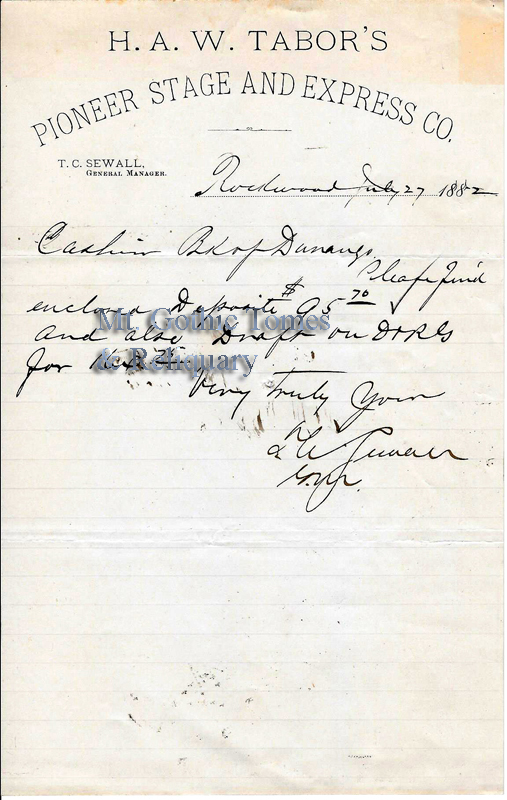 H. A. W. TABOR'S
PIONEER STAGE AND EXPRESS CO.
T. C. SEWALL,
GENERAL MANAGER.
Rockwood July 27 1882
Cashier Bk of Durango
Please find
enclosed Deposite $95 70
and also Draft on D&RG
for
Mt. Gothic Tomes
& Reliquary
Very Truly Yours
T C Sewall